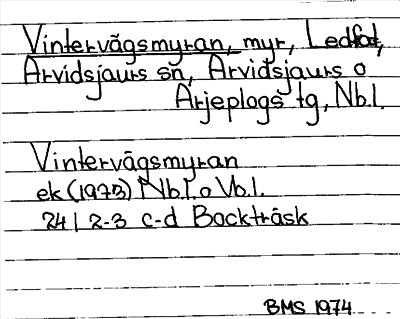 Vintervägsmyran, myr, Ledfat,
Arvidsjaurs sn, Arvidsjaurs o
Arjeplogs tg, Nb.l.
Vintervägsmyran
ek (1973) Nb.l. o Vb.l.
24 I 2-3 c-d Bockträsk
BMS 1974